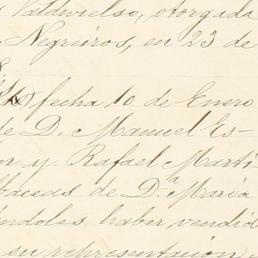 Valdivielso, otorgada
Negreiros, en 23 de
fecha 10 de Enero
de D. Manuel Es-
or y Rafael Marti
lbaceas de D.ª Maria
éndoles haber vendid
en su representación